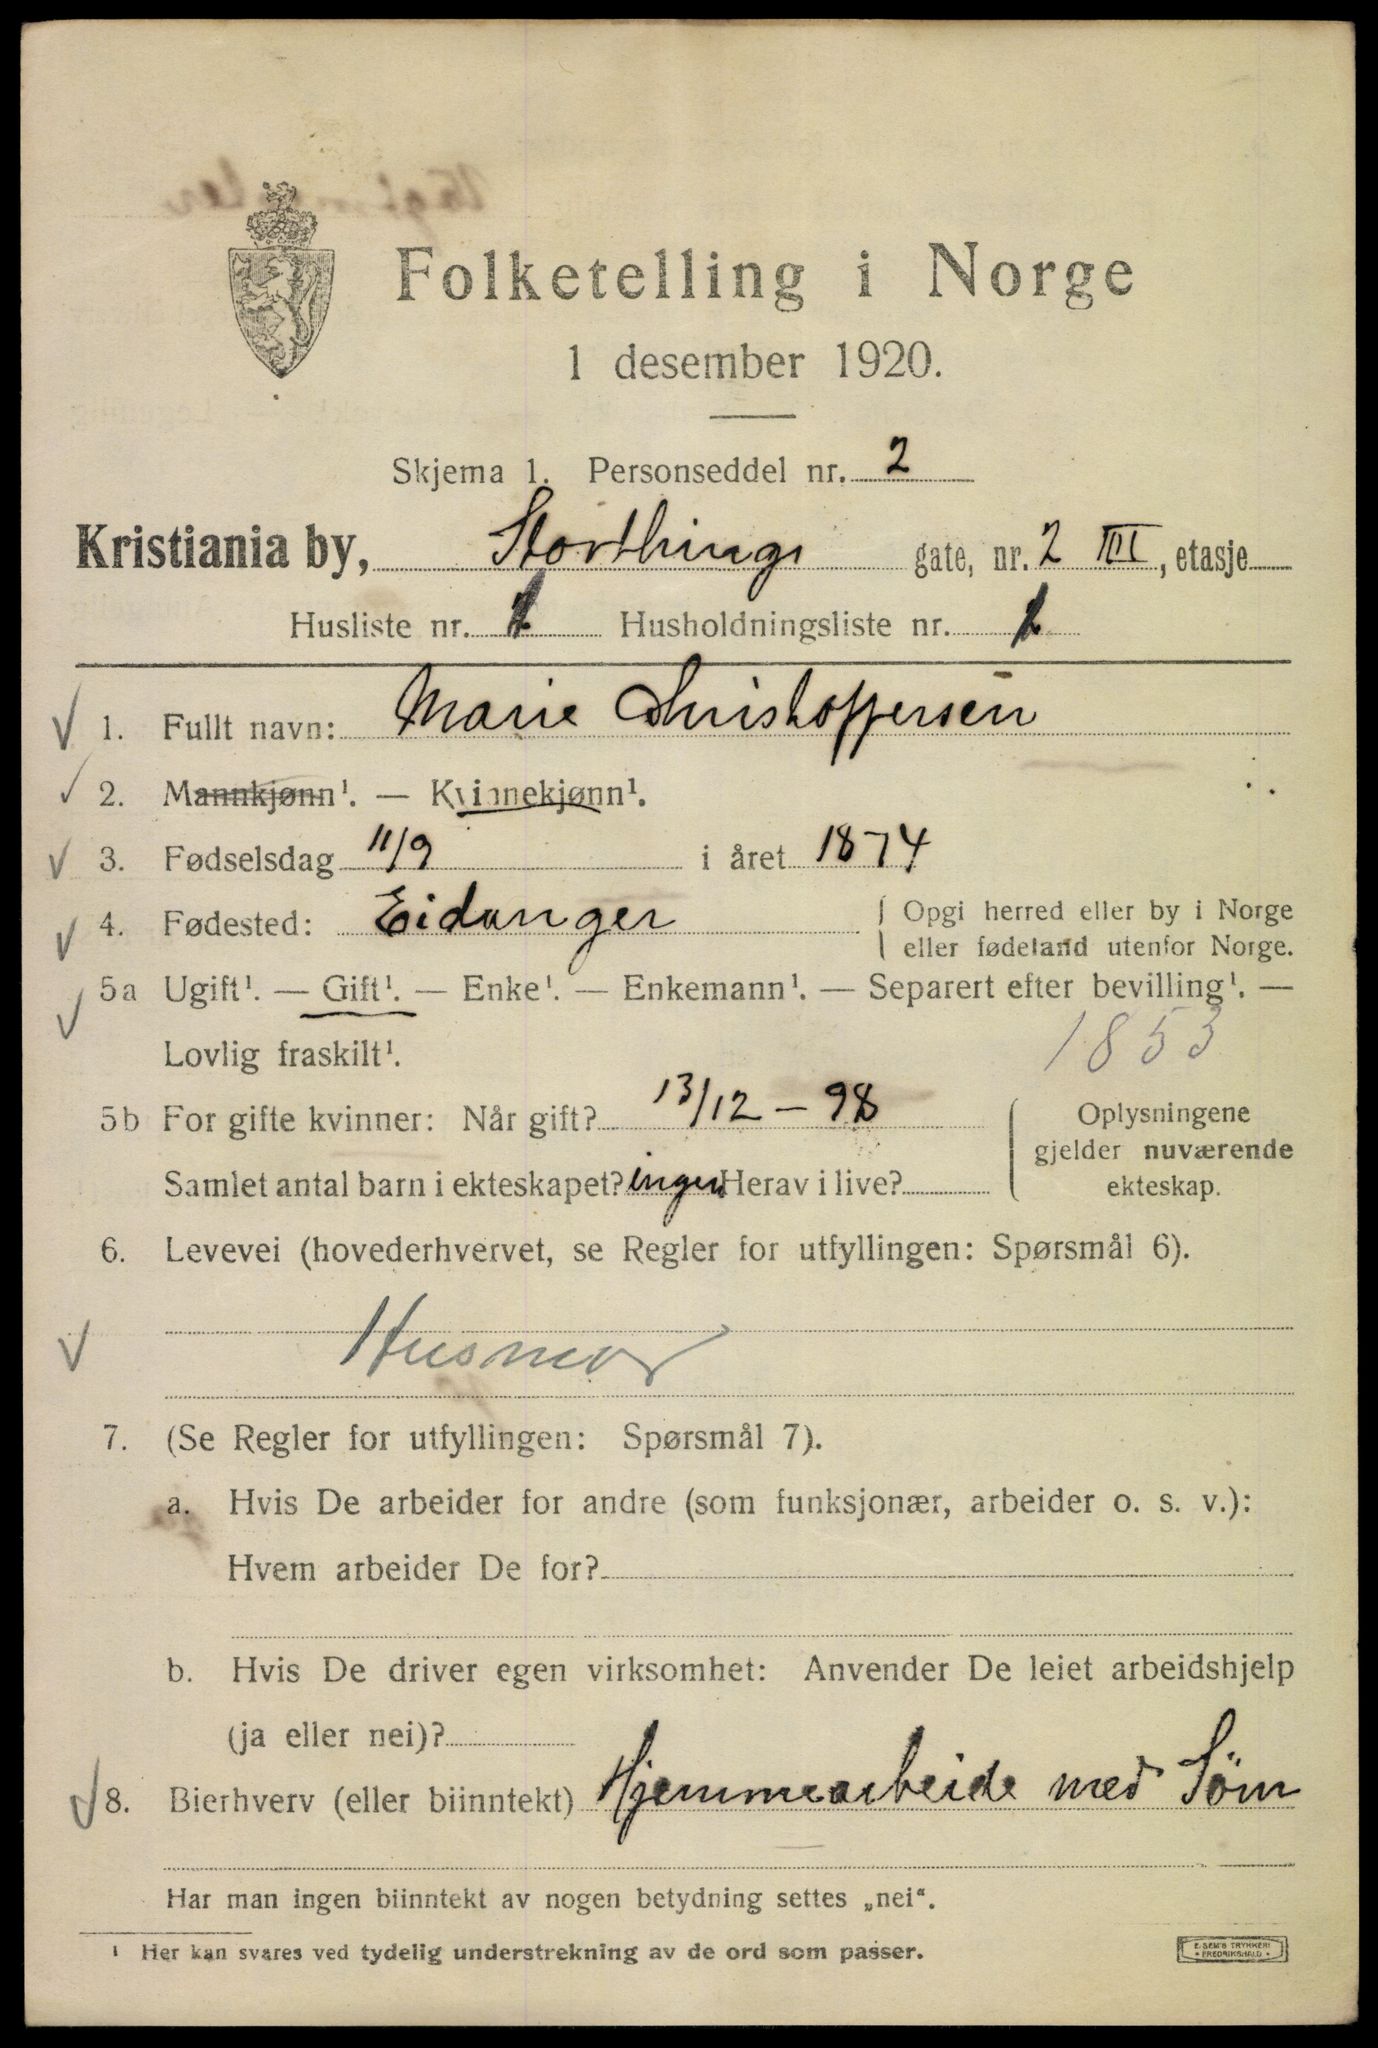 Folketelling i Norge
1 desember 1920.
Skjema 1. Personseddel nr. 2
Kristiania by, Storthings gate, nr. 2 III, etasje
Husliste nr. 1 Husholdningsliste nr. 1
1. Fullt navn: Marie Christoffersen
2. Mannkjønn¹. — Kvinnekjønn¹.
3. Fødselsdag 11/9 i året 1874
4. Fødested: Eidanger { Opgi herred eller by i Norge
eller fødeland utenfor Norge.
5a Ugift¹. — Gift¹. — Enke¹. — Enkemann¹. — Separert efter bevilling¹. —
Lovlig fraskilt¹. 1853
5b For gifte kvinner: Når gift? 13/12 – 98
Samlet antal barn i ekteskapet? ingen Herav i live?
Oplysningene
gjelder nuværende
ekteskap.
6. Levevei (hovederhvervet, se Regler for utfyllingen: Spørsmål 6).
Husmor
7. (Se Regler for utfyllingen: Spørsmål 7).
a. Hvis De arbeider for andre (som funksjonær, arbeider o. s. v.):
Hvem arbeider De for?
b. Hvis De driver egen virksomhet: Anvender De leiet arbeidshjelp
(ja eller nei)?
8. Bierhverv (eller biinntekt) Hjemmearbeide med Søm
Har man ingen biinntekt av nogen betydning settes „nei“.
¹ Her kan svares ved tydelig understrekning av de ord som passer.
E. SEM'S TRYKKERI
FREDRIKSHALD